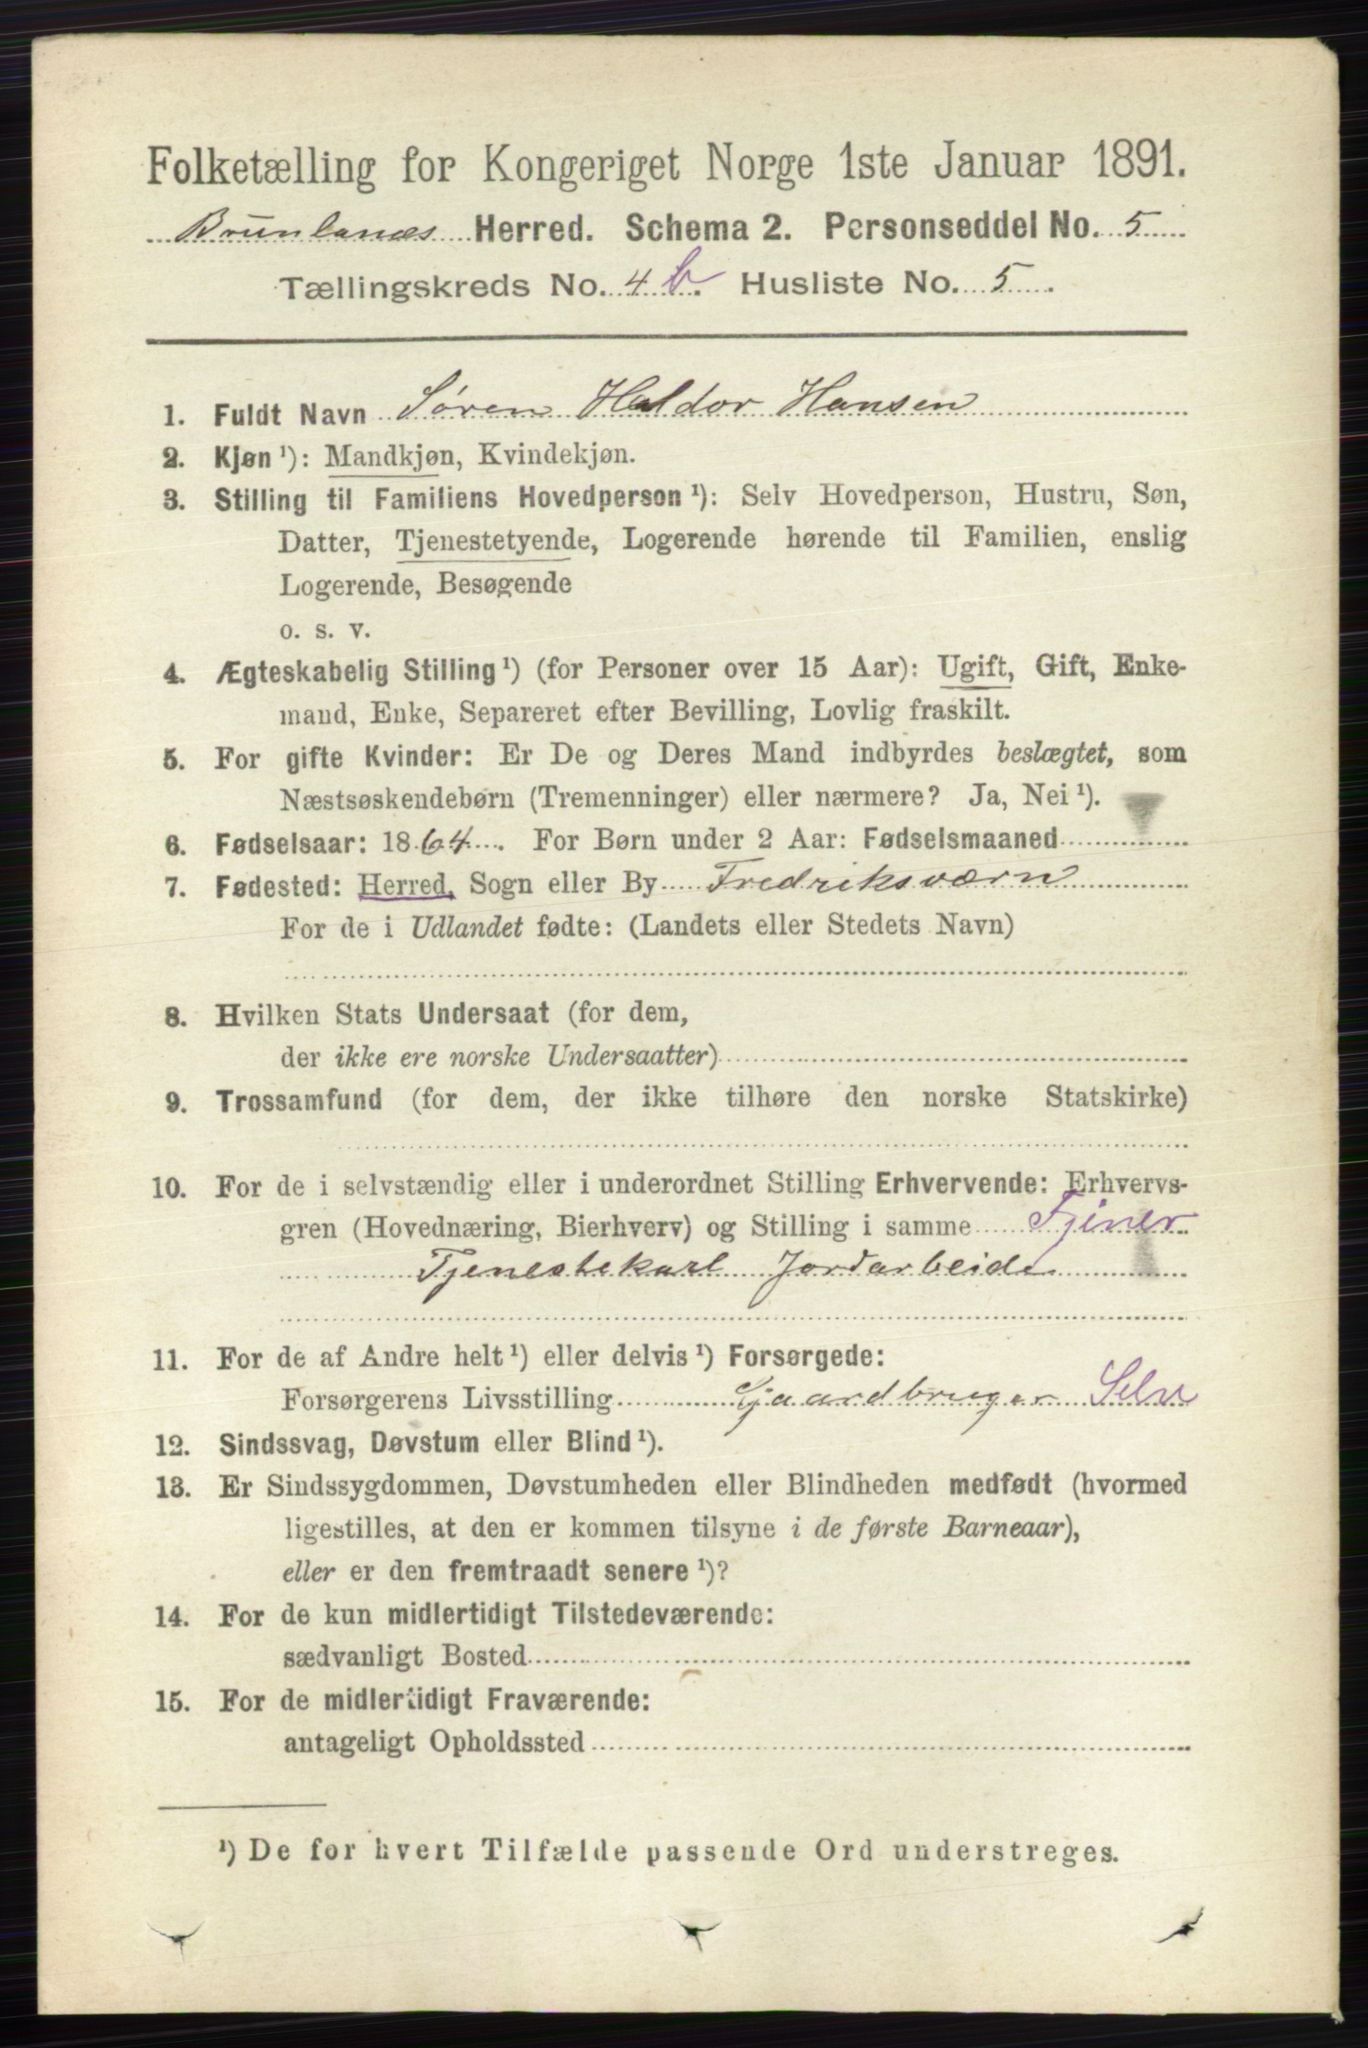 Folketælling for Kongeriget Norge 1ste Januar 1891.
Brunlanæs Herred. Schema 2. Personseddel No. 5
Tællingskreds No. 4 b. Husliste No. 5.
1. Fuldt Navn Søren Haldor Hansen
2. Kjøn¹): Mandkjøn, Kvindekjøn.
3. Stilling til Familiens Hovedperson¹): Selv Hovedperson, Hustru, Søn,
Datter, Tjenestetyende, Logerende hørende til Familien, enslig
Logerende, Besøgende
o. s. v.
4. Ægteskabelig Stilling¹) (for Personer over 15 Aar): Ugift, Gift, Enke-
mand, Enke, Separeret efter Bevilling, Lovlig fraskilt.
5. For gifte Kvinder: Er De og Deres Mand indbyrdes beslægtet, som
Næstsøskendebørn (Tremenninger) eller nærmere? Ja, Nei¹).
6. Fødselsaar: 1864. For Børn under 2 Aar: Fødselsmaaned
7. Fødested: Herred, Sogn eller By Fredriksværn
For de i Udlandet fødte: (Landets eller Stedets Navn)
8. Hvilken Stats Undersaat (for dem,
der ikke ere norske Undersaatter)
9. Trossamfund (for dem, der ikke tilhøre den norske Statskirke)
10. For de i selvstændig eller i underordnet Stilling Erhvervende: Erhvervs-
gren (Hovednæring, Bierhverv) og Stilling i samme Tjener
Tjenestekarl Jordarbeide
11. For de af Andre helt¹) eller delvis¹) Forsørgede:
Forsørgerens Livsstilling Gaardbruger Selv
12. Sindssvag, Døvstum eller Blind¹).
13. Er Sindssygdommen, Døvstumheden eller Blindheden medfødt (hvormed
ligestilles, at den er kommen tilsyne i de første Barneaar),
eller er den fremtraadt senere¹)?
14. For de kun midlertidigt Tilstedeværende:
sædvanligt Bosted
15. For de midlertidigt Fraværende:
antageligt Opholdssted
¹) De for hvert Tilfælde passende Ord understreges.